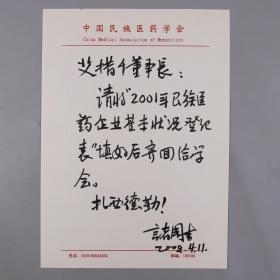 中国民族医药学会
China Medical Association of Minorities
艾措千董事长：
请将“2001年民族医
药企业基本状况登记
表”填好后寄回给学
会。
扎西德勒！
诸国本
2002.4.11.